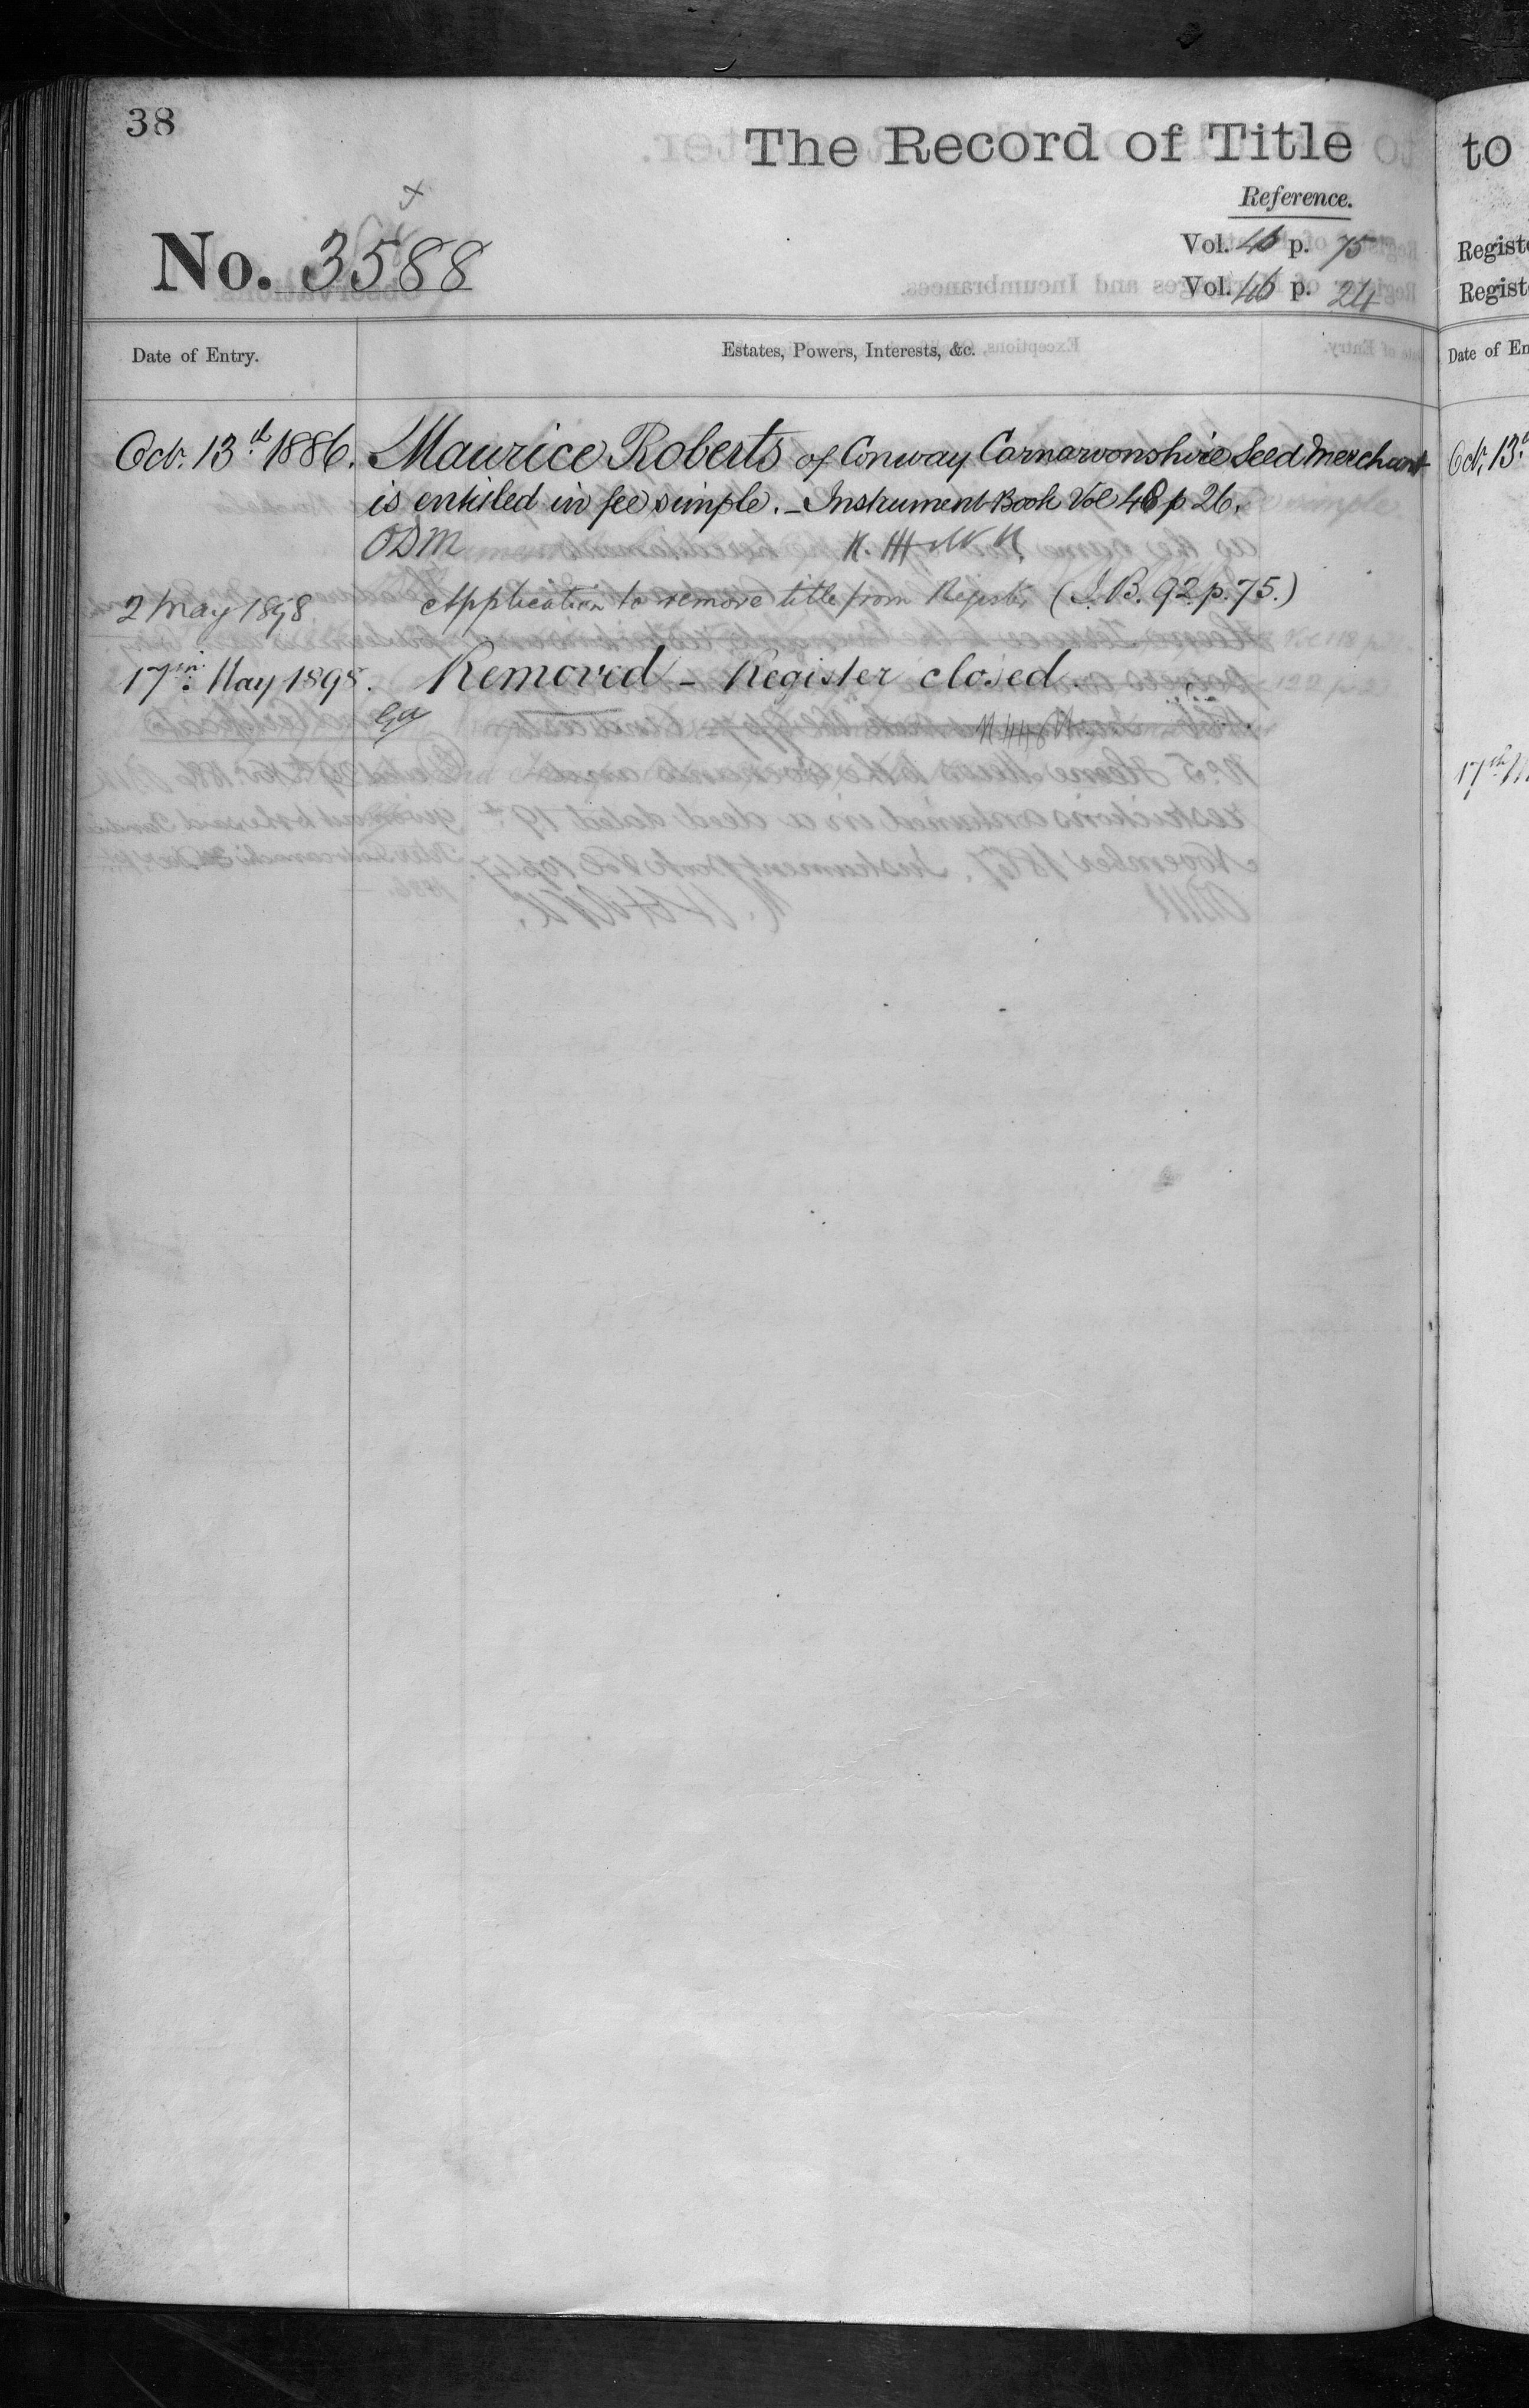 38
The Record of Title
Reference.
No. 3588
Vol. 46 p. 75
Vol. 46 p. 24
Date of Entry.
Estates, Powers, Interests, &c.
Oct. 13th 1886.
Maurice Roberts of Conway Carnarvonshire Seed Merchant
is entitled in fee simple. – Instrument Book Vol 48 p 26.
ODM
2 May 1898.
Application to remove title from Register (I.B. 92 p. 75.)
17th May 1898.
Removed – Register closed.
to
Registe
Registe
Date of En
Oct. 13th
17th M